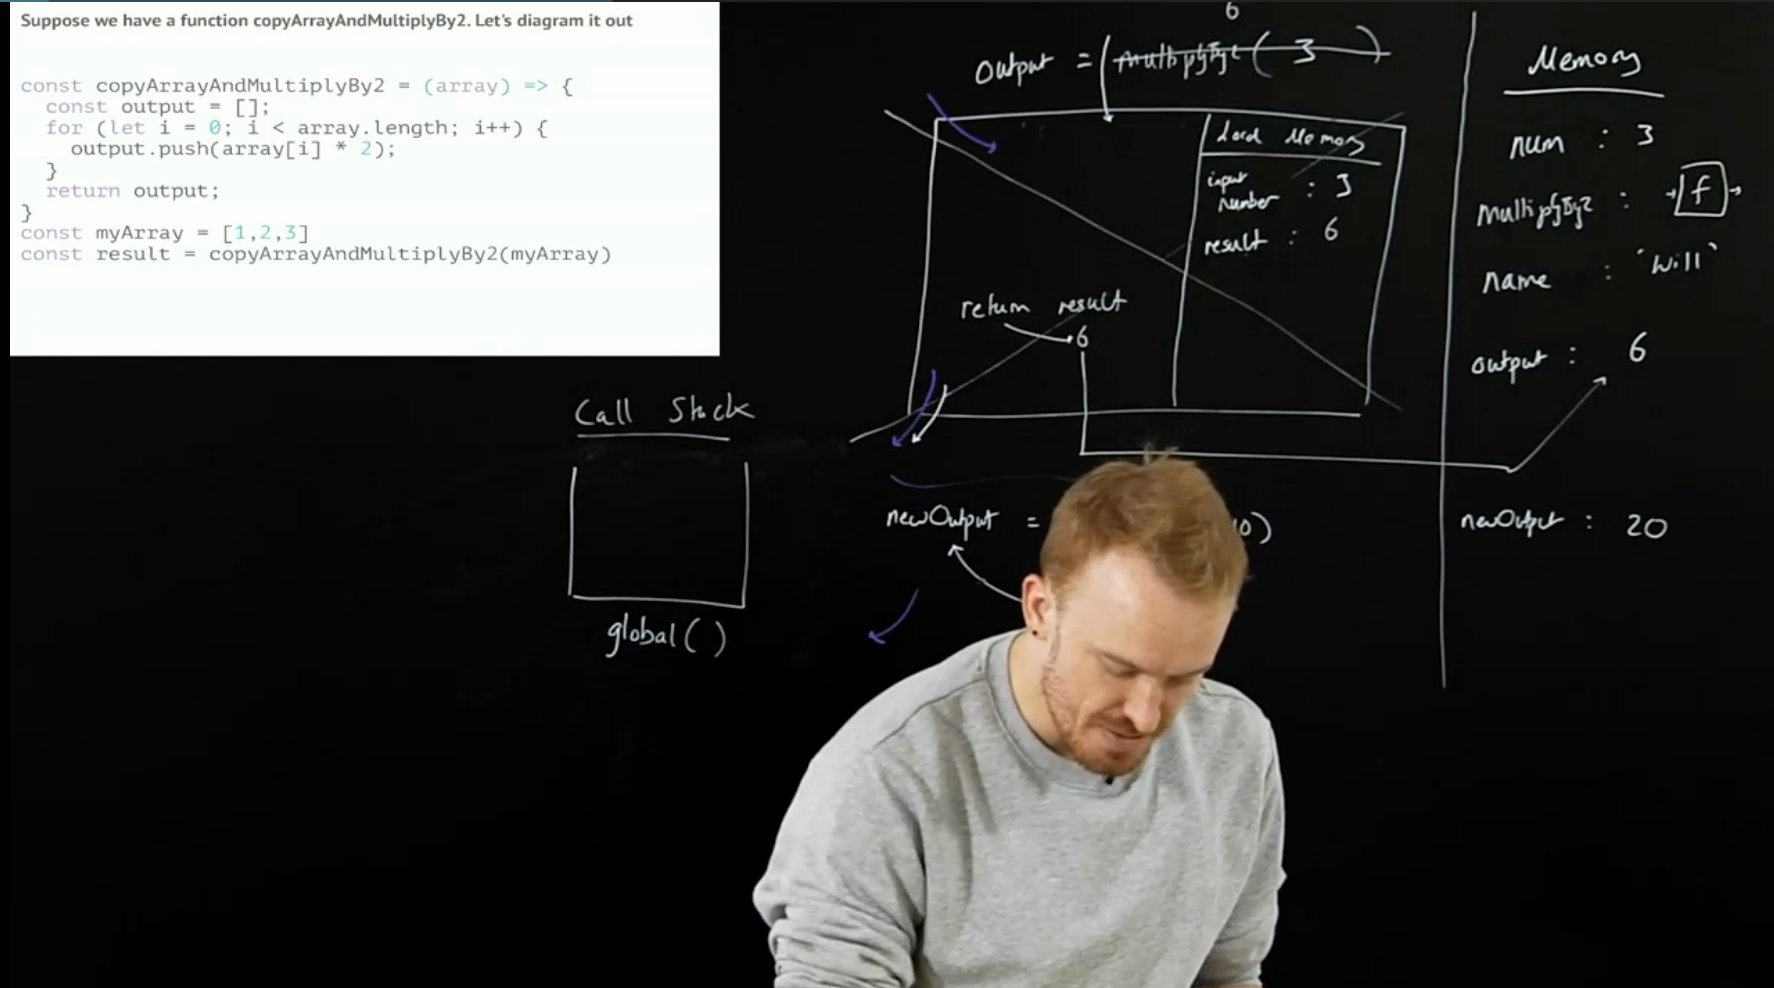 Suppose we have a function copyArrayAndMultiplyBy2. Let's diagram it out
const copyArrayAndMultiplyBy2 = (array) => {
const output = [];
for (let i = 0; i < array.length; i++) {
output.push(array[i] * 2);
}
return output;
}
const myArray = [1,2,3]
const result = copyArrayAndMultiplyBy2(myArray)
6
output = multiplyBy2 ( 3 )
Local Memory
input
number : 3
result : 6
return result
6
Memory
num : 3
multiplyBy2 : f
name : 'Will'
output : 6
newOutput : 20
Call Stack
global( )
newOutput =